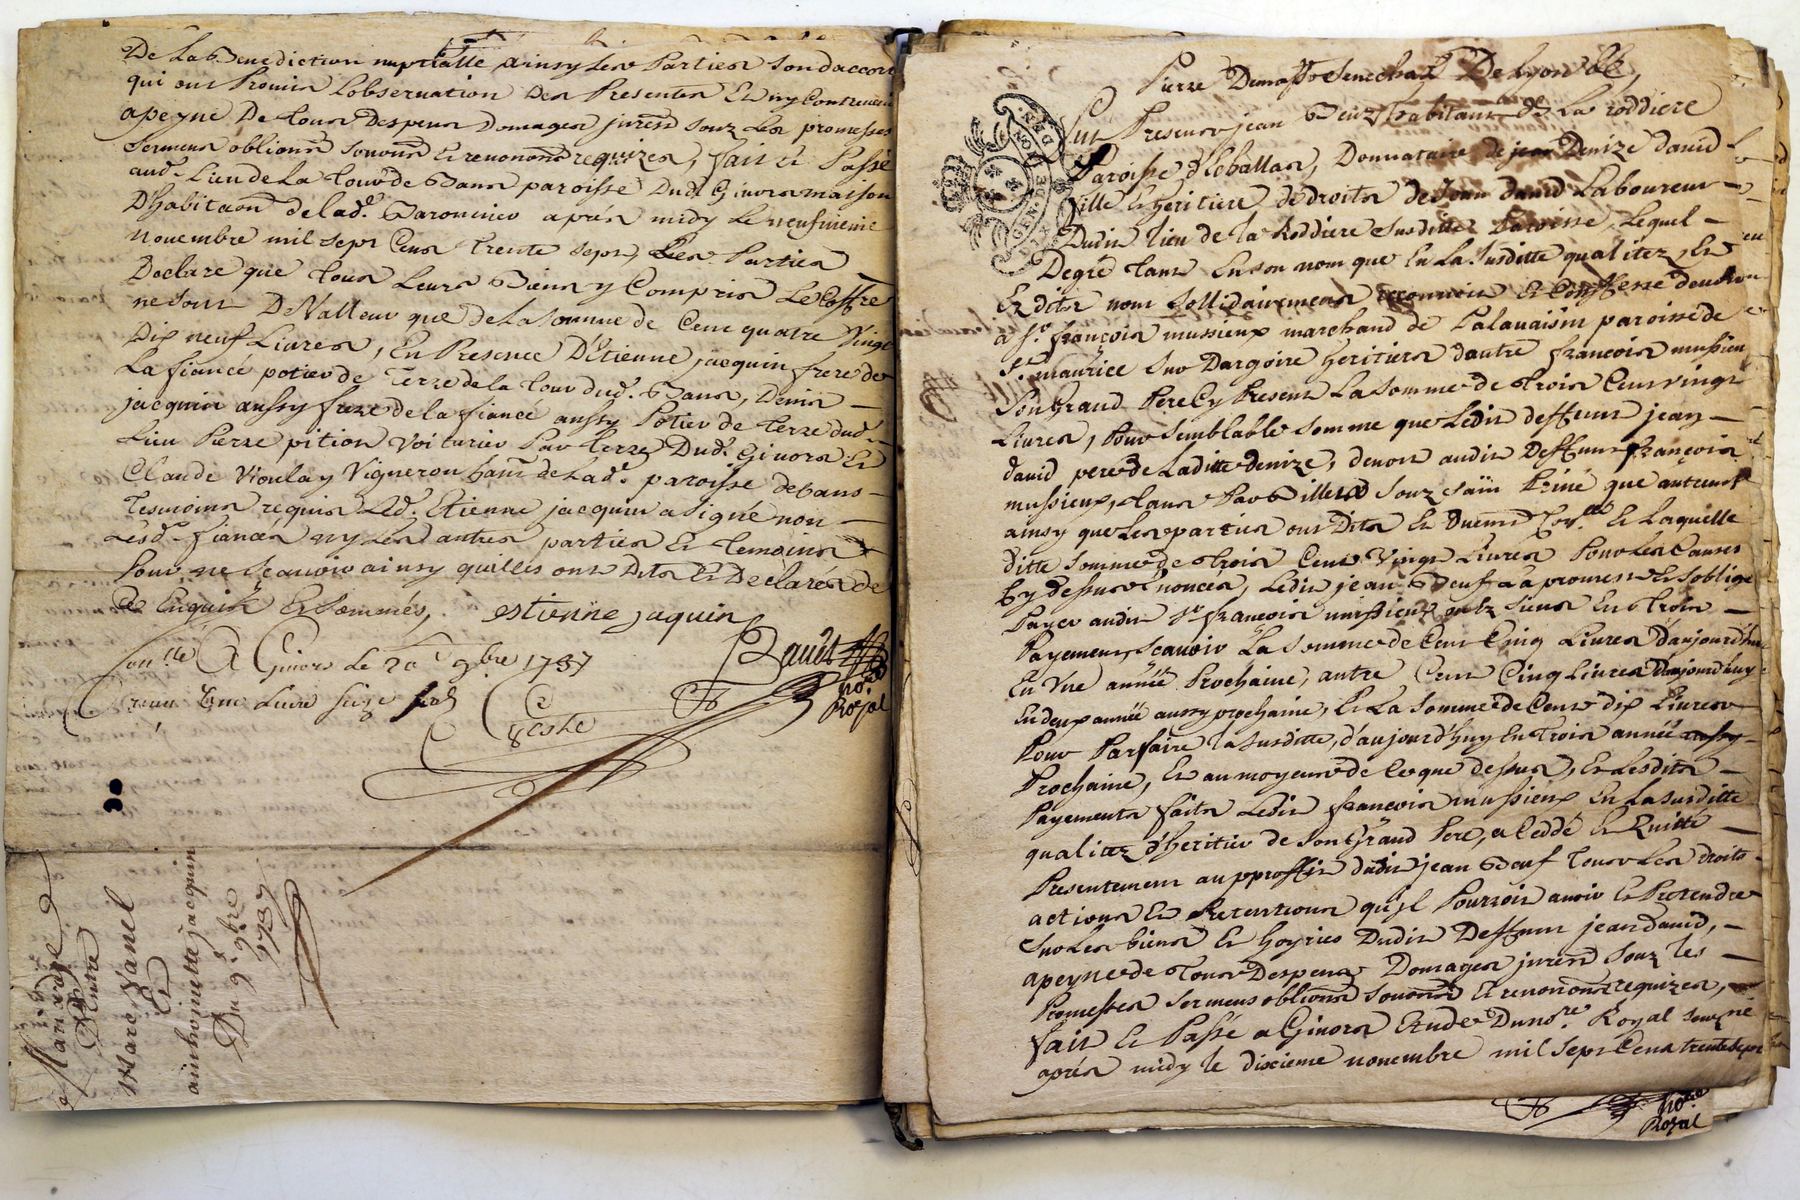 De La Benediction nuptialle ainsy Les Parties Sond accord
qui ont Promis Lobservation Des Presentes Et ny Contrevenir
apeyne De tous Despens Domages jurend Souz Les promesses
Sermens oblions Sonons Et renonons requizes, fait et Passé
aud. Lieu de La tour de Bans paroisse Dud. Givors maison
D'habitaon de lad. après midy Le neufvieme
novembre mil sept Cens trente sept, Les Parties
Declare que tous Leurs Biens y Compris Le Coffre
ne sont De Valleur que de La somme de Cent quatre Vingt
Dix neuf Livres, En Presence D'Etienne jacquin frere de
La fiancée potier de Terre de la tour dud. Bans, Denis
jacquin aussy frere de la fiancée aussy Potier de terre dud.
Lieu Pierre pition Voiturier Par terre Dud. Givors Et
Claude Vioulay Vigneron habt de Lad. paroisse de bans
Tesmoins requis Led. Etienne jacquin a signé non
Lesd. fiancés ny Les autres parties Et temoins
Pour ne Scavoir ainsy quilles ont Dits Et Declarés de
Ce Enquis Et Sommés, estienne jaquin
Conllé A Givors le 20e 9bre 1737
Reçu une Livre seize sols
No.re
Royal
Mariage
Entre
Marc Vanel
Et
anthoinette jacquin
Du 9e 9bre
1737
Pierre Senechaz De Lyon
GEN. DE LYON
Sur Presens jean Beuf habitant de La roddiere
Paroisse d'Echallas, Donnataire de jean Denize david
fille Et heritiere de droits de Jean david Laboureur
Dudit lieu de la Roddiere Susditte Paroisse, Lequel
De gré tant En son nom que En La Susditte qualitez, Et
Es dits nom Sollidairement reconnoit Et Confesse devoir
à Sr. françois mussieux marchand de Palavaisin paroisse de
St. maurice Sur Dargoire heritiers dautre françois mussieu
Son Grand Pere Cy Present La Somme de trois Cent vingt
Livres, Pour Semblable Somme que Ledit deffunt jean
david pere de Laditte denize, devoit audit Deffunt françois
mussieux, tant Par Billets Souz Sain Privé que autrement
ainsy que Les parties ont Dits Et Laquelle
ditte Somme de trois Cent Vingt Livres Pour Les Causes
Cy dessus Enoncés, Ledit jean Beuf La promesse Et S'oblige
Payer audit Sr. françois mussieux En trois
Payement, Scavoir La Somme de Cent Cinq Livres d'aujourd'huy
En Une année Prochaine, autre Cent Cinq Livres D'aujourdhuy
En deux année aussy prochaine, Et La Somme de Cent dix Livres
Pour Parfaire la Susditte, d'aujourd'huy En trois année aussy
Prochaine, Et au moyens de Ce que dessus, Et Lesdits
Payements faits Ledit françois mussieux En La Susditte
qualitez d'heritier de Son Grand Pere, a Ceddé Et Quitte
Presentement au proffit dudit jean Beuf Tous Les droits
actions Et Pretentions qu'jl Pourroit avoir Et Pretendre
Sur Les biens Et hoyries Dudit Deffunt jean david,
apeyne de Tous Despens Domages jurend Souz les
Promesses Sermens oblions Sonons Et renonons requizes,
fait Et Passé a Givors Etude Du nore. Royal Souzné
après midy le dixieme novembre mil Sept Cens trente sept
Nore.
Royal